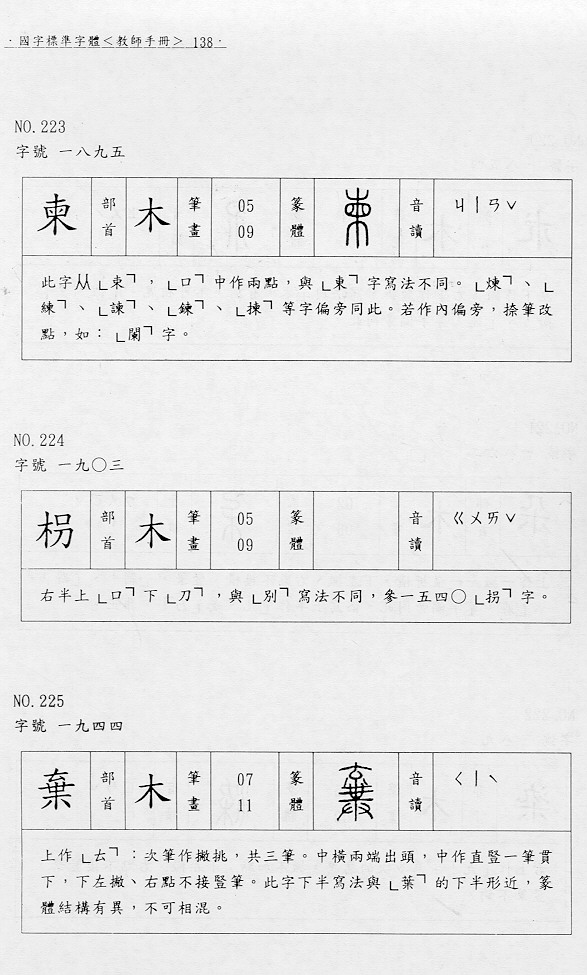 ·國字標準字體＜教師手冊＞ 138·
NO.223
字號 一八九五
柬 部首 木 筆畫 05 09 篆體 音讀 ㄐㄧㄢˇ
此字从「束」，「口」中作兩點，與「東」字寫法不同。「煉」、「
練」、「諫」、「鍊」、「揀」等字偏旁同此。若作內偏旁，捺筆改
點，如：「闌」字。
NO.224
字號 一九〇三
枴 部首 木 筆畫 05 09 篆體 音讀 ㄍㄨㄞˇ
右半上「口」下「刀」，與「別」寫法不同，參一五四〇「拐」字。
NO.225
字號 一九四四
棄 部首 木 筆畫 07 11 篆體 音讀 ㄑㄧˋ
上作「𠫓」：次筆作撇挑，共三筆。中橫兩端出頭，中作直豎一筆貫
下，下左撇、右點不接豎筆。此字下半寫法與「葉」的下半形近，篆
體結構有異，不可相混。